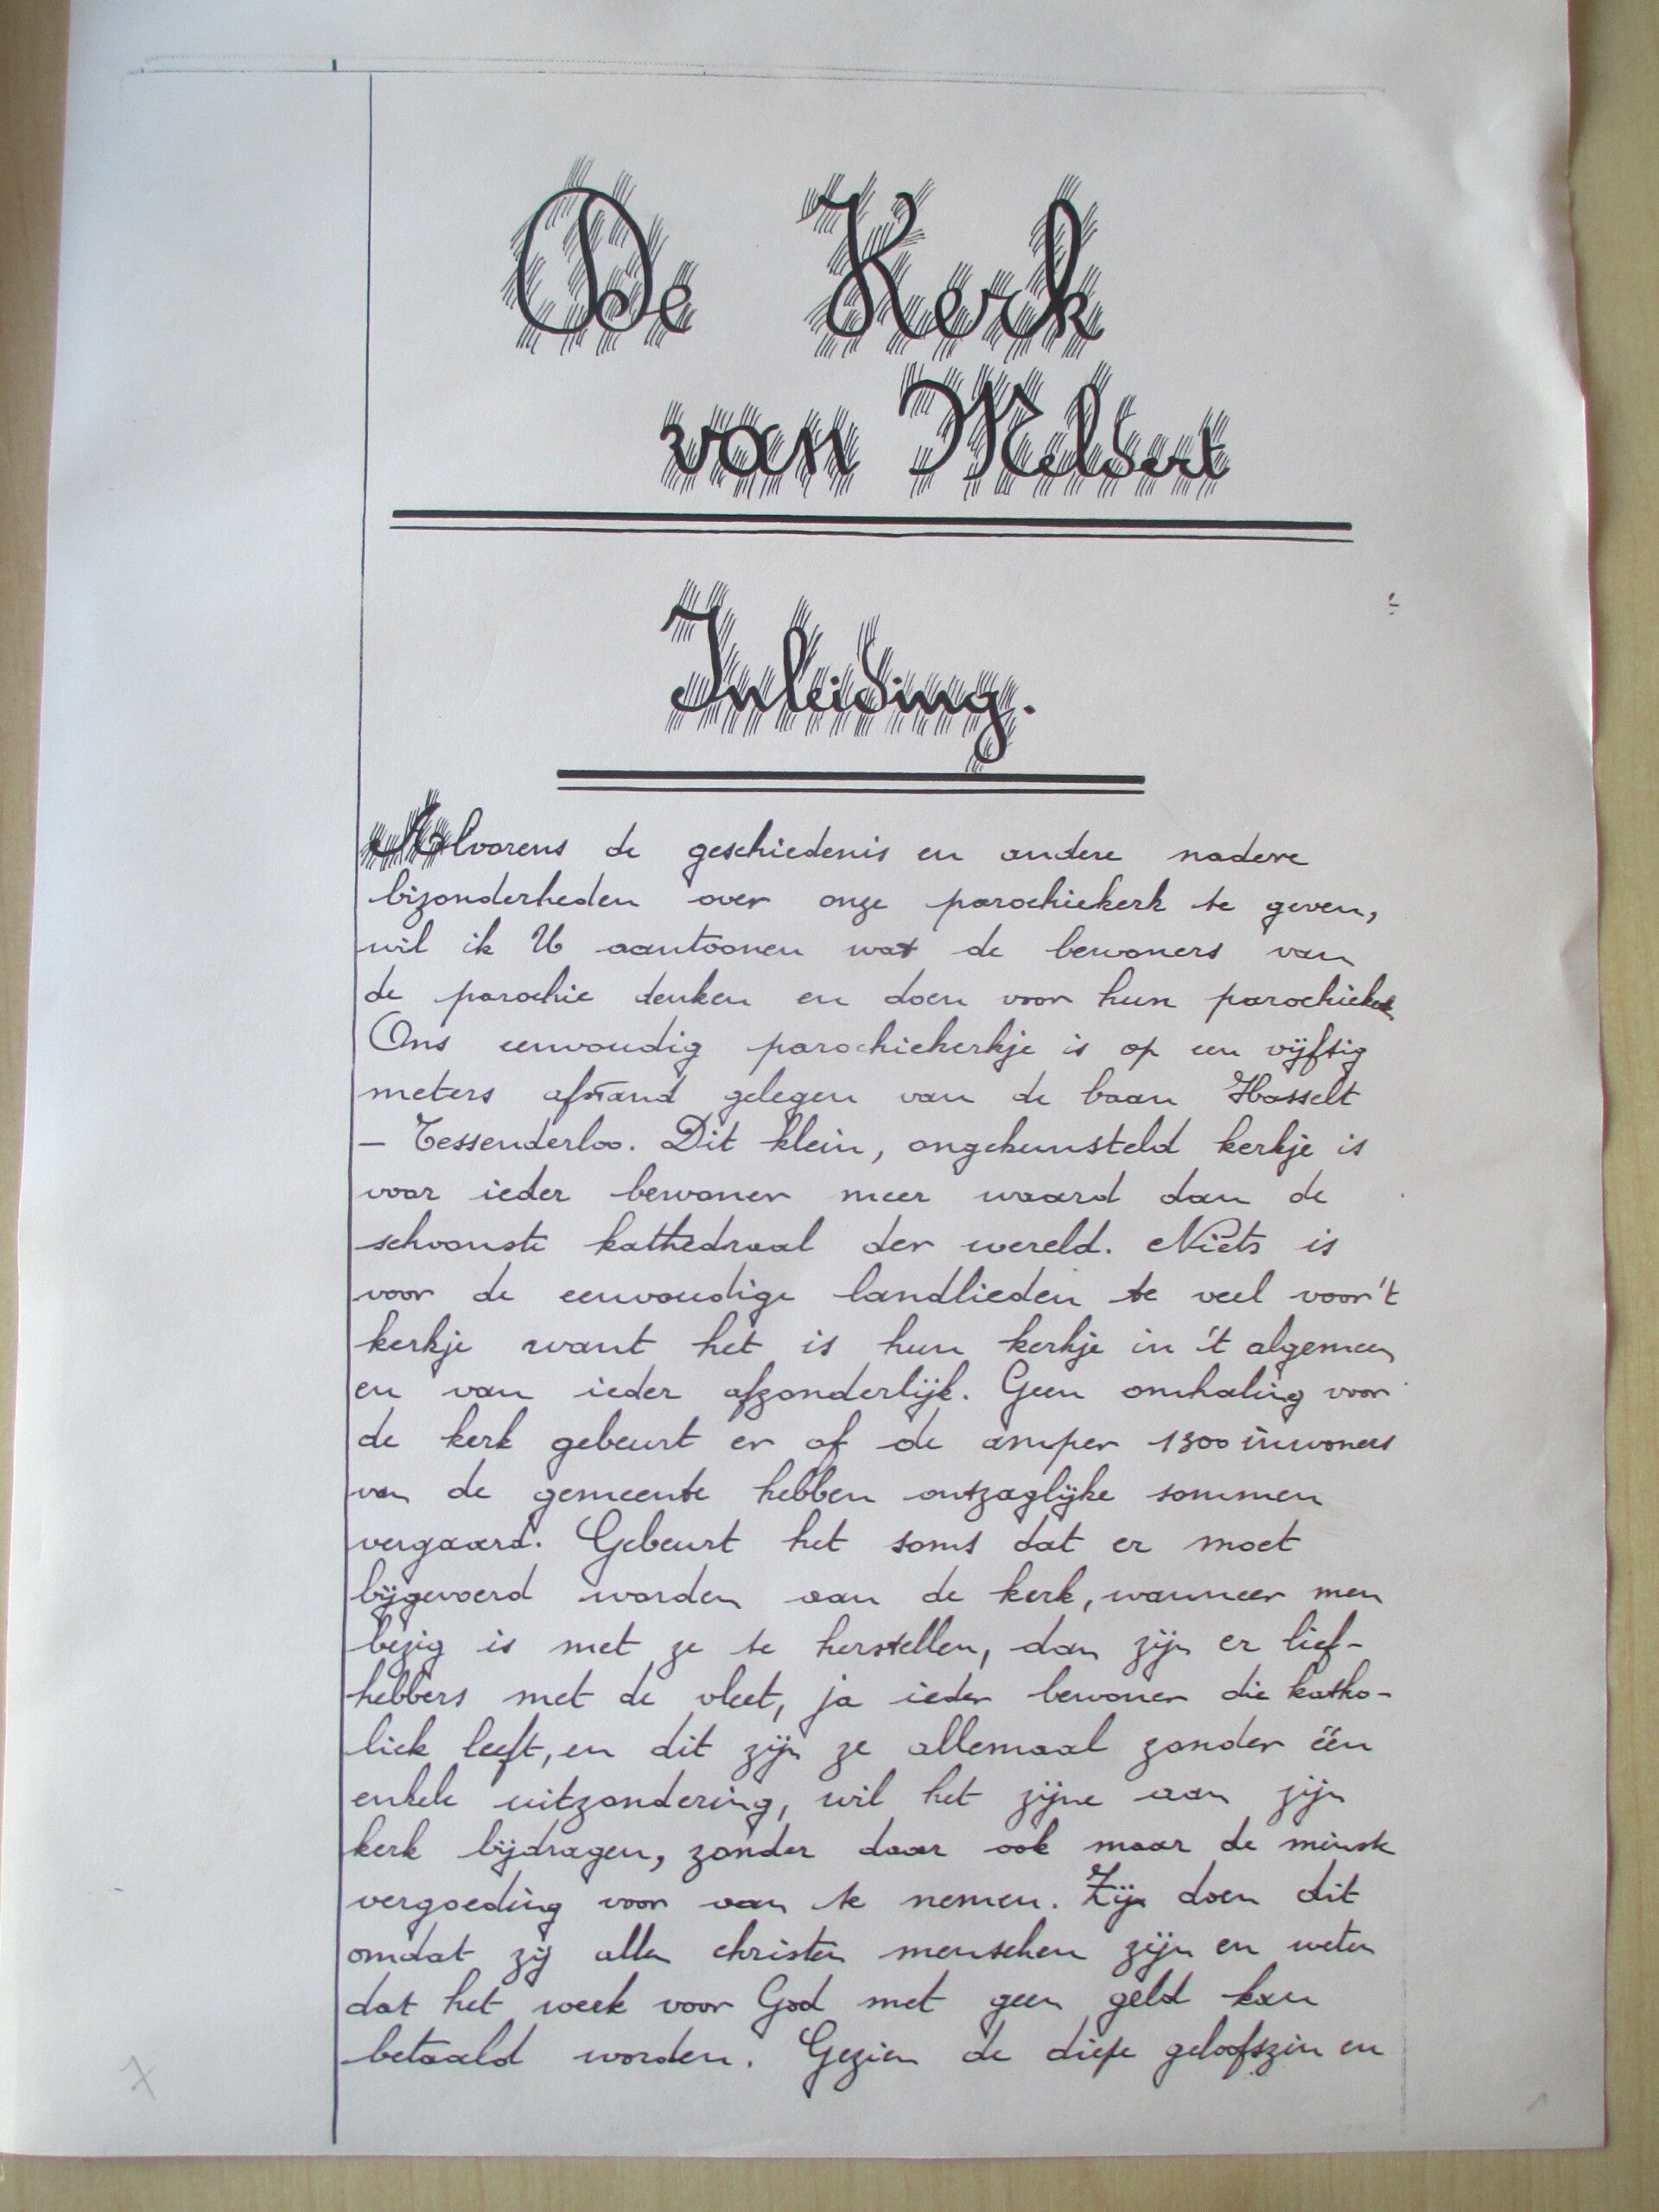 De Kerk
van Meldert
Inleiding.
Alvorens de geschiedenis en andere nadere
bizonderheden over onze parochiekerk te geven,
wil ik U aantoonen wat de bewoners van
de parochie denken en doen voor hun parochiekerk
Ons eenvoudig parochiekerkje is op een vijftig
meters afstand gelegen van de baan Hasselt
– Tessenderloo. Dit klein, ongekunsteld kerkje is
voor ieder bewoner meer waard dan de
schoonste kathedraal der wereld. Niets is
voor de eenvoudige landlieden te veel voor 't
kerkje want het is hun kerkje in 't algemeen
en van ieder afzonderlijk. Geen omhaling voor
de kerk gebeurt er of de amper 1300 inwoners
van de gemeente hebben ontzaglijke sommen
vergaard. Gebeurt het soms dat er moet
bijgevoerd worden aan de kerk, wanneer men
bezig is met ze te herstellen, dan zijn er lief-
hebbers met de vleet, ja ieder bewoner die katho-
liek leeft, en dit zijn ze allemaal zonder één
enkele uitzondering, wil het zijne aan zijn
kerk bijdragen, zonder daar ook maar de minste
vergoeding voor aan te nemen. Zij doen dit
omdat zij allen christen menschen zijn en weten
dat het werk voor God met geen geld kan
betaald worden. Gezien de diepe geloofszin en
7